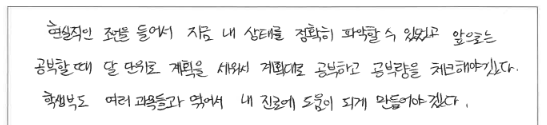 현실적인 조언을 들어서 지금 내 상태를 정확히 파악할 수 있었고 앞으로는
공부할 때 달 단위로 계획을 세워서 계획대로 공부하고 공부량을 체크해야겠다.
학생부도 여러 과목들과 엮어서 내 진로에 도움이 되게 만들어야겠다.